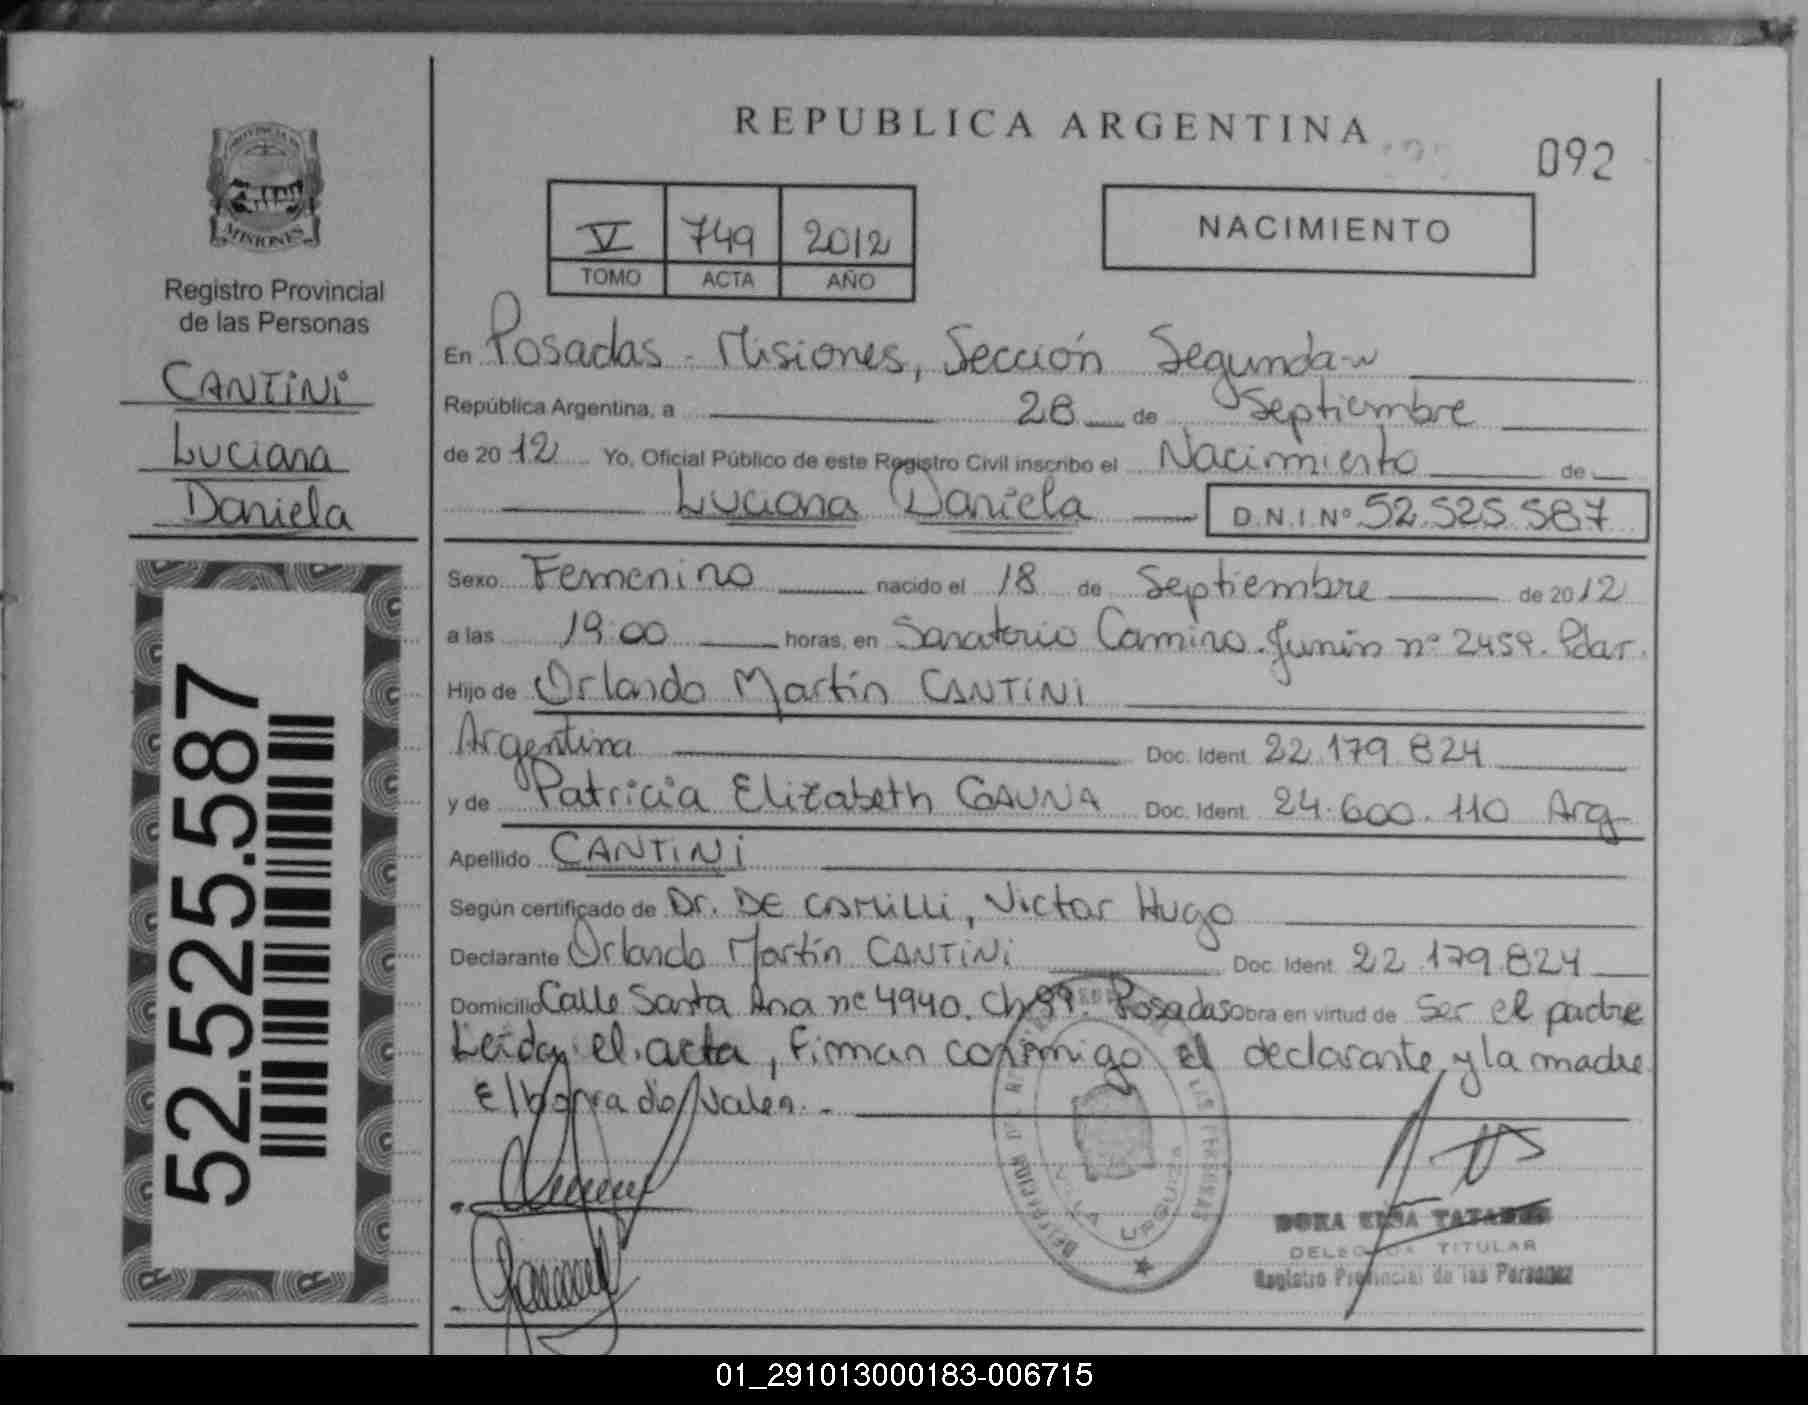 REPUBLICA ARGENTINA
092
PROVINCIA DE
MISIONES
Registro Provincial
de las Personas
CANTINI
Luciana
Daniela
52.525.587
V 749 2012
TOMO ACTA AÑO
NACIMIENTO
En Posadas - Misiones, Sección Segunda
República Argentina, a 28 de Septiembre
de 2012 Yo, Oficial Público de este Registro Civil inscribo el Nacimiento de
Luciana Daniela D.N.I.Nº 52.525.587
Sexo Femenino nacido el 18 de Septiembre de 2012
a las 19:00 horas, en Sanatorio Camino. Junín nº 2459. Pdar.
Hijo de Orlando Martín CANTINI
Argentina Doc. Ident. 22.179.824
y de Patricia Elizabeth GAUNA Doc. Ident. 24.600.110 Arg
Apellido CANTINI
Según certificado de Dr. DE CAMILLI, Victor Hugo
Declarante Orlando Martín CANTINI Doc. Ident. 22.179.824
Domicilio Calle Santa Ana nº 4940. Ch 99. Posadas obra en virtud de ser el padre
Leída el acta, Firman conmigo el declarante y la madre.
El borrado Valen.-
VILLA URQUIZA
LAS PERSONAS
DORA ELSA
DELEGADA TITULAR
Registro Provincial de las Personas
01_291013000183-006715